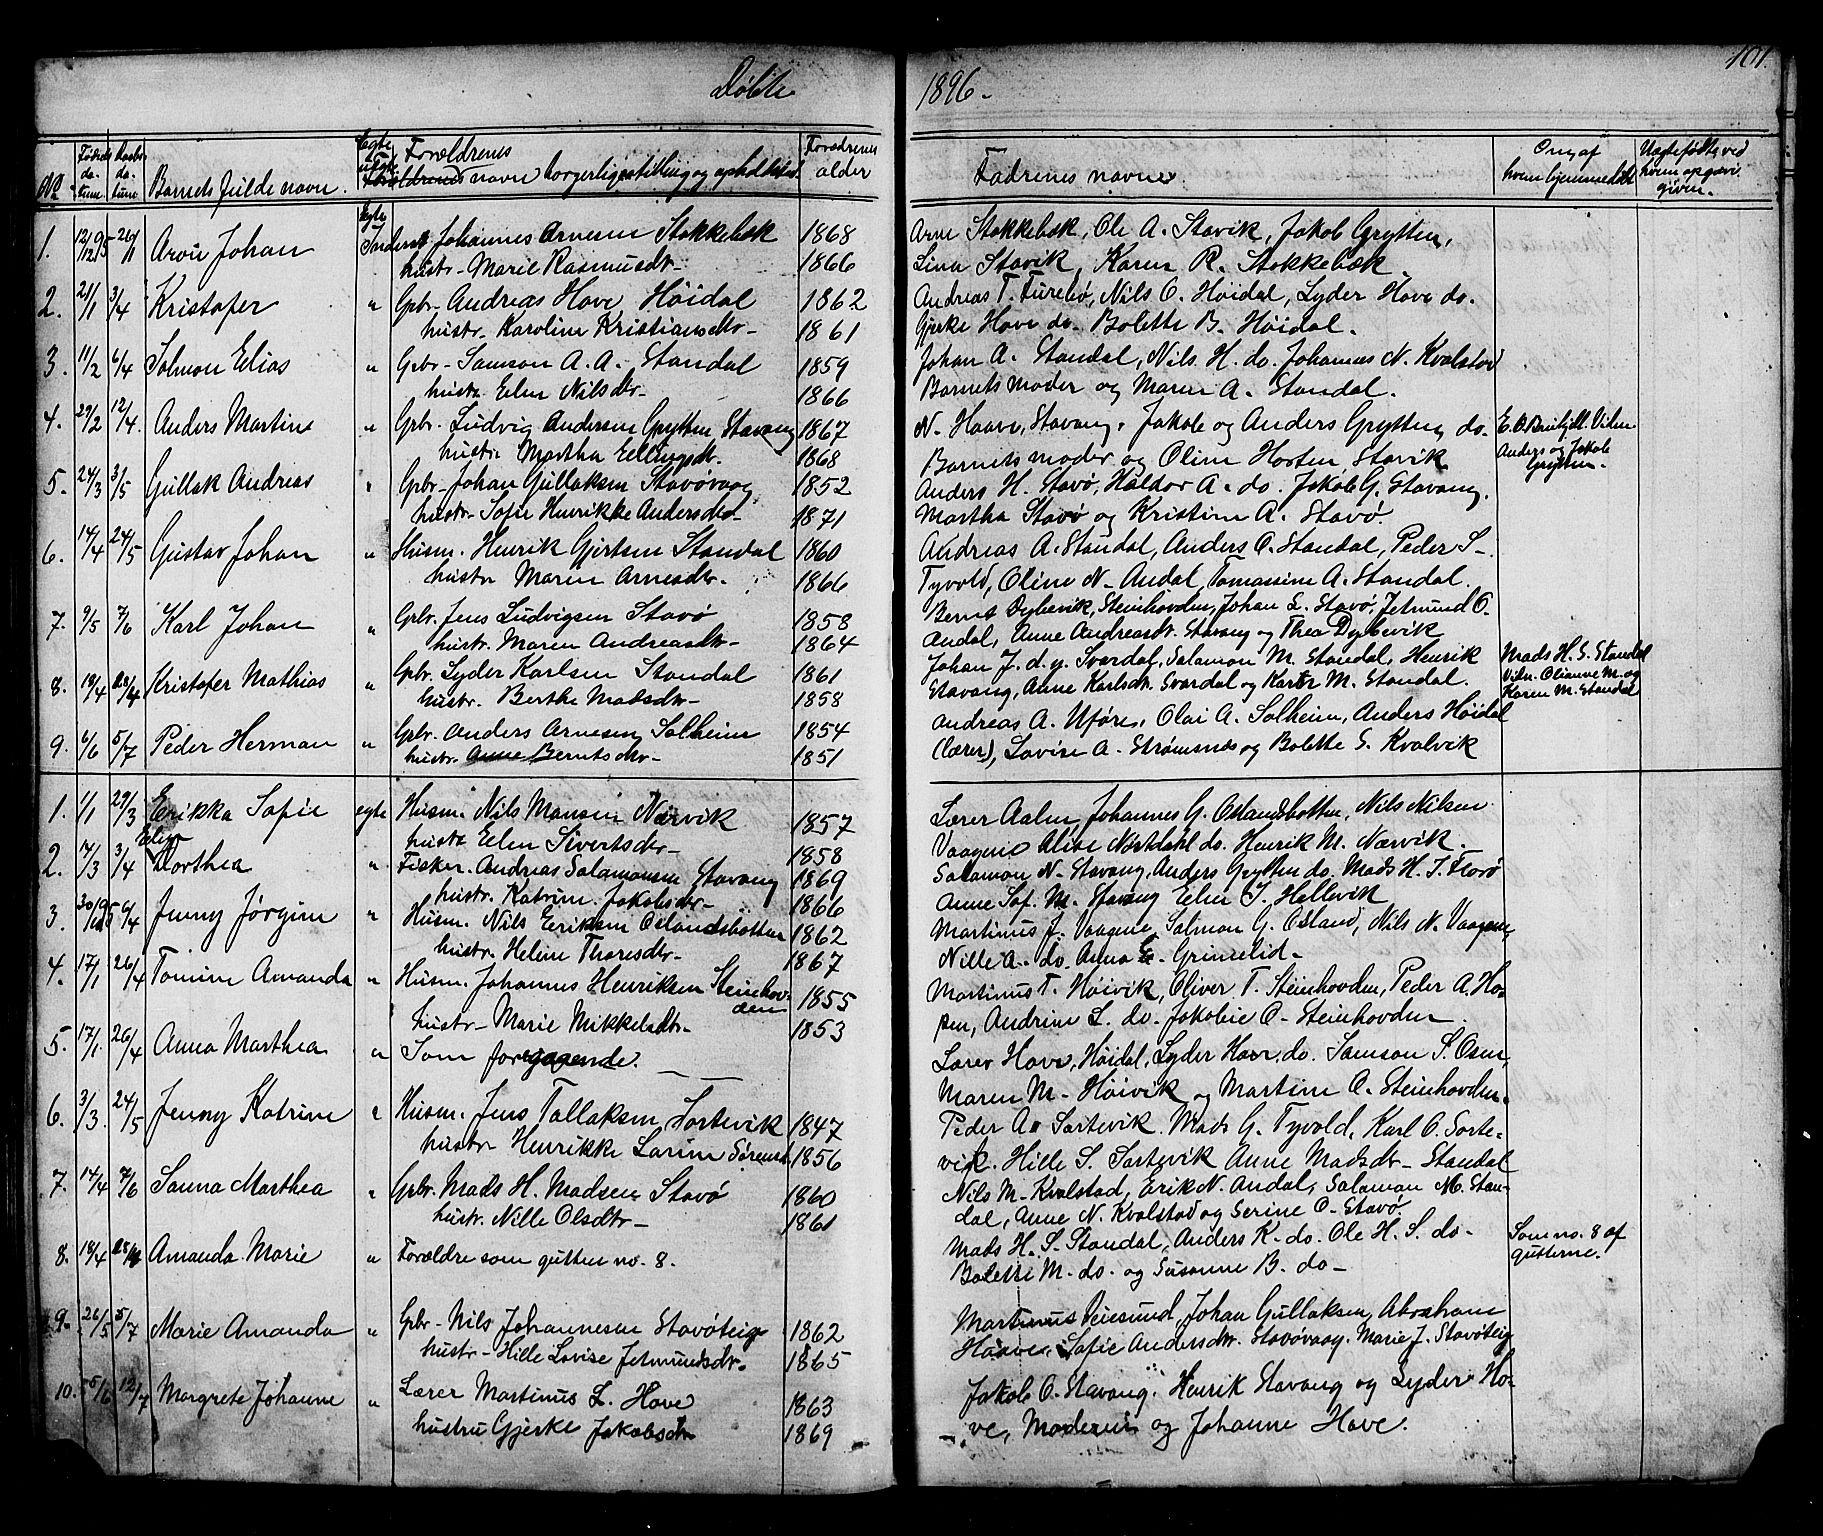 Døbte
1896.
101.
No
Fødsels datum
Daabs datum
Barnets fulde navn.
Egte uegte
Forældrenes
Forældrenes navn borgerligestilling og opholdssted
Forældrenes alder
Fadrenes navne
Om, af hvem hjemmedøbt
Uægtefødte, ved hvem opgave given.
1. 12/12 95 26/1 Johan Egte Johannes Arnesen Stokkebæk 1868 Arne Stokkebæk, Ole A. Stavik, Jakob Grytten,
hustr. Marie Rasmusdtr. 1866 Lina Stavik, Karen R. Stokkebæk.
2. 21/1 3/4 Kristofer " Gbr. Andreas Hove Høidal 1862 Andreas T. Furebø, Nils O. Høidal, Lyder Hove do.
hustr. Karoline Kristiansdtr. 1861 Gjerke Hove do. Bolette B. Høidal.
3. 11/2 6/4 Salmon Elias " Gbr. Samson A. A. Standal 1859 Johan A. Standal, Nils H. do. Johannes N. Kvalstad
hustr. Elen Nilsdtr. 1866 Barnets moder og Maren A. Standal.
4. 29/2 12/4 Anders Martin " Gbr. Ludvig Andersen Grytten, Stavang 1867 N. Haave, Stavang. Jakob og Anders Grytten, do. Vidne Anders og Jakob Grytten.
hustr. Martha Ellingsdtr. 1868 Barnets moder og Oline Horten, Stavik
5. 24/3 3/5 Gullak Andreas " Gbr. Johan Gullaksen Stavøvaag 1852 Anders H. Stavø, Haldor A. do. Jakob G. Stavang.
hustr. Sofie Henrikke Andersdtr. 1871 Martha Stavø og Kristine A. Stavø.
6. 14/4 24/5 Gustav Johan " Husm. Henrik Gjertsen Standal 1860 Andreas A. Standal, Anders O. Standal, Peder S.
hustr. Maren Arnesdtr. 1866 Tyvold, Oline N. Andal, Tomassine A. Standal.
7. 9/5 7/6 Karl Johan " Gbr. Jens Ludvigsen Stavø 1858 Bernt Dybevik, Steinhovden, Johan L. Stavø, Jetmund O.
hustr. Maren Andreasdtr. 1864 Andal, Anne Andreasdtr. Stavang og Thea Dybevik
8. 19/4 Kristofer Mathias " Gbr. Lyder Karlsen Standal 1861 Johan J. d. y. Svardal, Salamon M. Standal, Henrik Mads H. S. Standal Vidn. Olianne M. og Karen M. Standal
hustr. Berthe Madsdtr. 1858 Stavang, Anne Karlsdtr. Svardal og Karen M. Standal.
9. 6/6 5/7 Peder Herman " Gbr. Anders Arnesen Solheim 1854 Andreas A. Uføre, Olai A. Solheim, Anders Høidal
hustr. Anne Berntsdtr. 1851 (Lærer), Lovise A. Strømsnes og Bolette S. Kvalvik
1. 1/1 29/3 Erikka Sofie egte Husm. Nils Monsen Nærvik 1857 Lærer Aalen, Johannes G. Oslandsbotten, Nils Nilsen
hustr. Elen Sivertsdtr. 1858 Vaagene Alise Nordahl do. Henrik M. Nærvik.
2. 7/3 3/4 Dorthea " Fisker. Andreas Salamonsen Stavang 1869 Salamon N. Stavang, Anders Grytten do. Mads H. J. Florø
hustr. Katrine Jakobsdtr. 1866 Anne Sof. M. Stavang Elen J. Hellevik
3. 6/4 Jenny Jørgine " Husm. Nils Eriksen Oslandsbotten 1862 Martinus J. Vaagene, Salmon G. Osland, Nils N. Vaagene,
hustr. Heline Thoresdtr. 1867 Nille A. do. Anna E. Grimelid.
4. 17/1 26/4 Tomine Amanda " Husm. Johannes Henriksen Steinhovden 1855 Martinus T. Høivik, Oliver T. Steinhovden, Peder A. Ho-
hustr. Marie Mikkelsdtr. 1853 pen, Andrine L. do. Jakobie O. Steinhovden.
5. 17/1 26/4 Anna Marthea " Som foregaaende. Lærer Hove, Høidal, Lyder Hove do. Samson S. Osen,
Maren M. Høivik og Martine O. Steinhovden.
6. 3/3 24/5 Jenny Katrine " Husm. Jens Tallaksen Sortevik 1847 Peder A. Sortevik. Mads G. Tyvold, Karl O. Sorte-
hustr. Henrikke Larine Sørensd. 1856 vik. Hille S. Sortevik Anne Madsdtr. Standal
7. 14/4 7/6 Sanna Marthea " Gbr. Mads H. Madsen Stavø 1860 Nils M. Kvalstad, Erik N. Andal, Salamon M. Stan-
hustr. Nille Olsdtr. 1861 dal, Anne N. Kvalstad og Serine O. Stavø.
8. 19/4 Amanda Marie " Forældre som gutten no. 8. Mads H. S. Standal, Anders K. do. Ole H. S. do. Som no. 8 af gutterne.
Bolette M. do. og Susanne B. do.
9. 26/5 5/7 Marie Amanda " Gbr. Nils Johannesen Stavøteig 1862 Martinus Veiesund, Johan Gullaksen, Abraham
hustr. Hille Lovise Jetmundsdtr. 1865 Haave, Sofie Andersdtr. Stavøvaag. Marie J. Stavøteig
10. 5/6 12/7 Margrete Johanne " Lærer Martinus L. Hove 1863 Jakob O. Stavang. Henrik Stavang og Lyder Ho-
hustru Gjerke Jakobsdtr 1869 ve, Moderen og Johanne Hove.